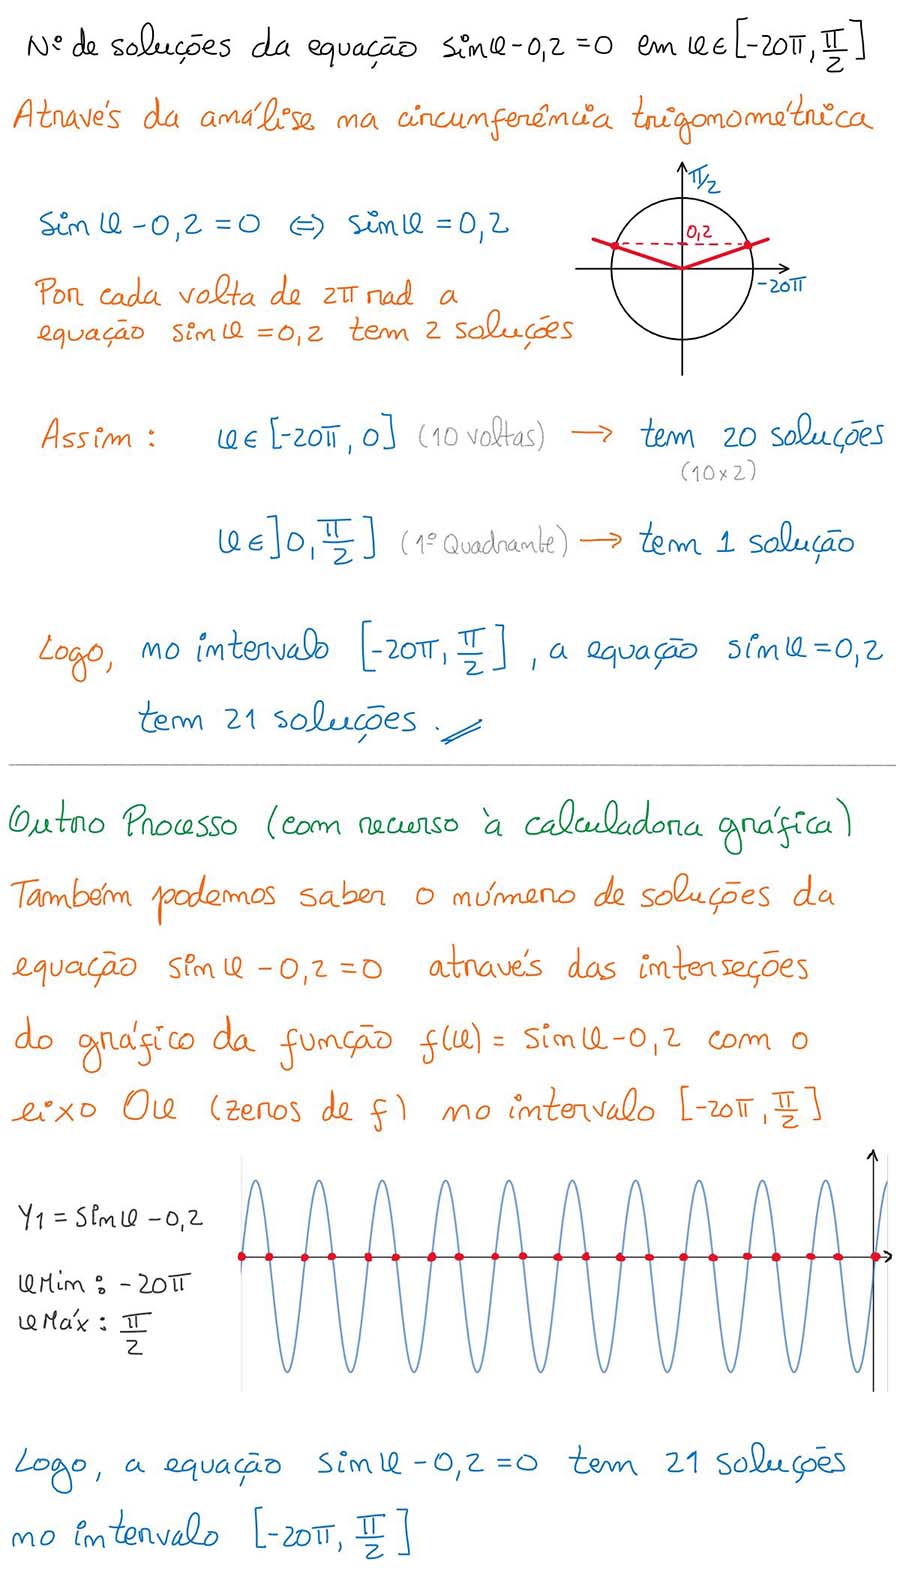 Nº de soluções da equação sinx-0,2=0 em x∈[-20π, π/2]
Através da análise na circunferência trigonométrica
π/2
sinx-0,2=0 ⇔ sinx=0,2
0,2
-20π
Por cada volta de 2π rad a
equação sinx=0,2 tem 2 soluções
Assim: x∈[-20π, 0] (10 voltas) → tem 20 soluções
(10×2)
x∈]0, π/2] (1º Quadrante) → tem 1 solução
Logo, no intervalo [-20π, π/2], a equação sinx=0,2
tem 21 soluções.
Outro Processo (com recurso à calculadora gráfica)
Também podemos saber o número de soluções da
equação sinx-0,2=0 através das interseções
do gráfico da função f(x)=sinx-0,2 com o
eixo Ox (zeros de f) no intervalo [-20π, π/2]
Y1=sinx-0,2
xMin: -20π
xMáx: π/2
Logo, a equação sinx-0,2=0 tem 21 soluções
no intervalo [-20π, π/2]